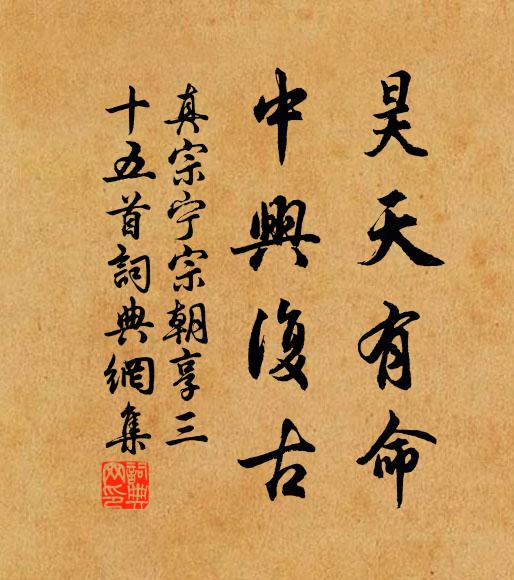 昊天有命
中興復古
真宗宁宗朝享三
十五首詞典網集
詞典
网印